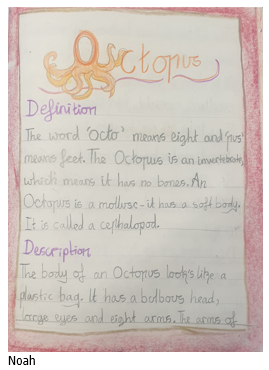 Octopus
Definition
The word 'Octo' means eight and 'pus'
means feet. The Octopus is an invertebrate,
which means it has no bones. An
Octopus is a mollusc - it has a soft body.
It is called a cephalopod.
Description
The body of an Octopus look's like a
plastic bag. It has a bulbous head,
large eyes and eight arms. The arms of
Noah